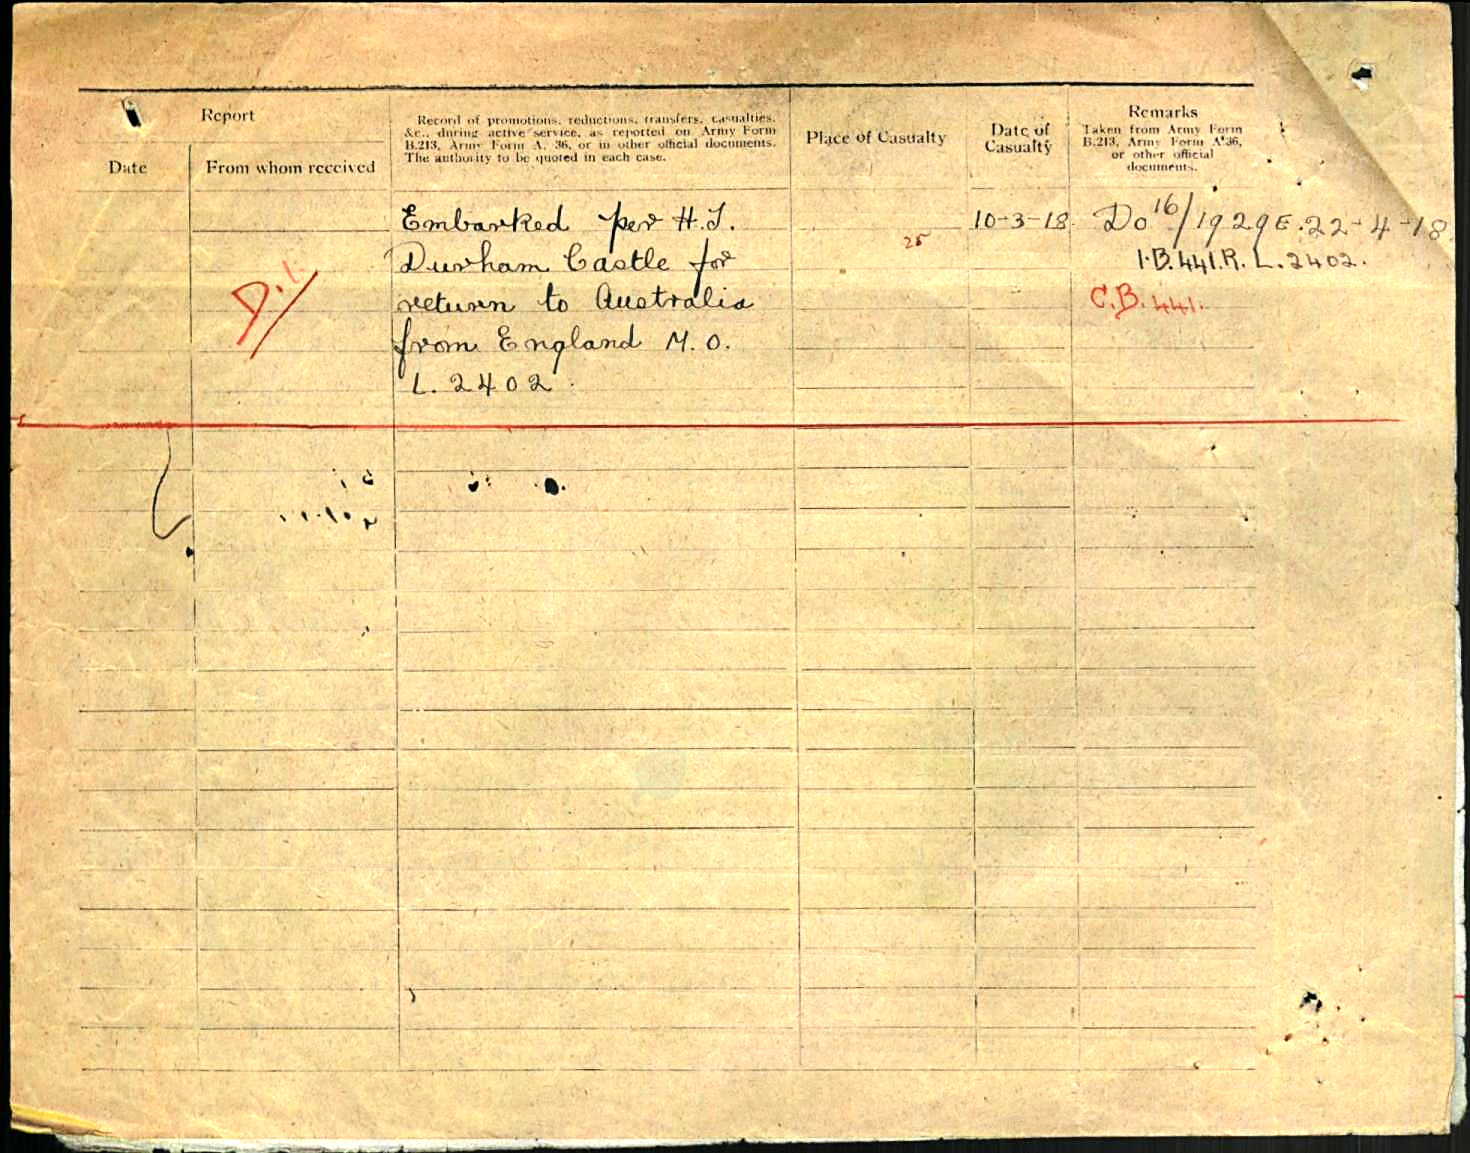 Report
Date
From whom received
Record of promotions, reductions, transfers, casualties,
&c., during active service, as reported on Army Form
B.213, Army Form A. 36, or in other official documents.
The authority to be quoted in each case.
Place of Casualty
Date of
Casualty
Remarks
Taken from Army Form
B.213, Army Form A.36,
or other official
documents.
Embarked per H.T.
Durham Castle for
return to Australia
from England M.O.
L. 2402
25
10-3-18
Do 16/1929E. 22-4-18
1.B.441.R. L. 2402.
C.B. 441.